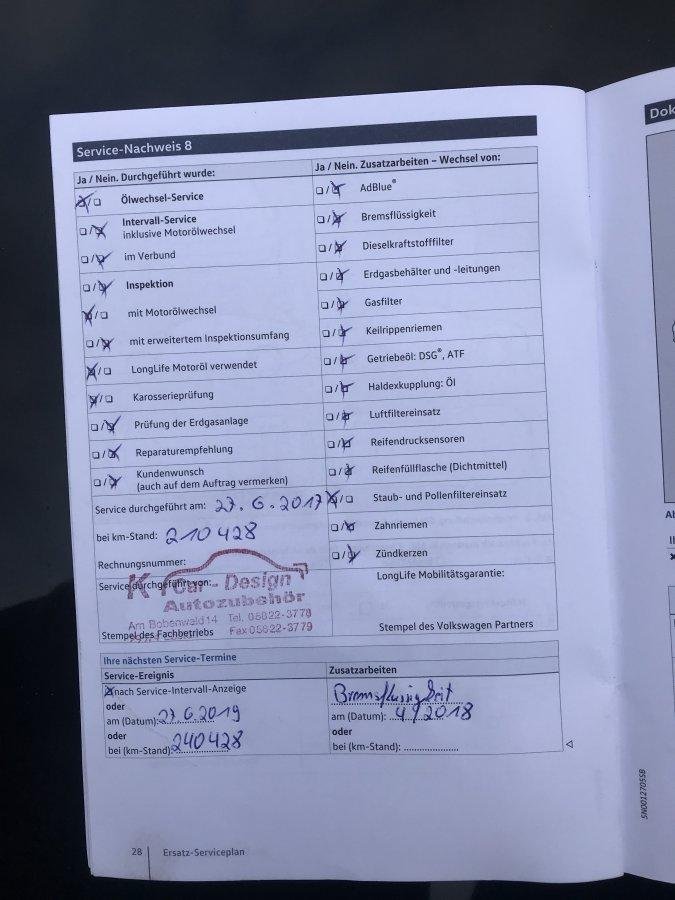 Service-Nachweis 8
Ja / Nein. Durchgeführt wurde:
Ölwechsel-Service
Intervall-Service
inklusive Motorölwechsel
im Verbund
Inspektion
mit Motorölwechsel
mit erweitertem Inspektionsumfang
LongLife Motoröl verwendet
Karosserieprüfung
Prüfung der Erdgasanlage
Reparaturempfehlung
Kundenwunsch
(auch auf dem Auftrag vermerken)
Service durchgeführt am: 27.6.2017
bei km-Stand: 210428
Rechnungsnummer:
Service durchgeführt von:
Car-Design
Autozubehör
Am Bobenwald 14 Tel. 05622-3778
Fax 05622-3779
Stempel des Fachbetriebs
Ja / Nein. Zusatzarbeiten – Wechsel von:
AdBlue®
Bremsflüssigkeit
Dieselkraftstofffilter
Erdgasbehälter und -leitungen
Gasfilter
Keilrippenriemen
Getriebeöl: DSG®, ATF
Haldexkupplung: Öl
Luftfiltereinsatz
Reifendrucksensoren
Reifenfüllflasche (Dichtmittel)
Staub- und Pollenfiltereinsatz
Zahnriemen
Zündkerzen
LongLife Mobilitätsgarantie:
Stempel des Volkswagen Partners
Ihre nächsten Service-Termine
Service-Ereignis
nach Service-Intervall-Anzeige
oder
am (Datum): 27.6.2019
oder
bei (km-Stand): 240428
Zusatzarbeiten
Bremsflüssigkeit
am (Datum): 4/2018
oder
bei (km-Stand):
28
Ersatz-Serviceplan
SN0012705SB
Dok